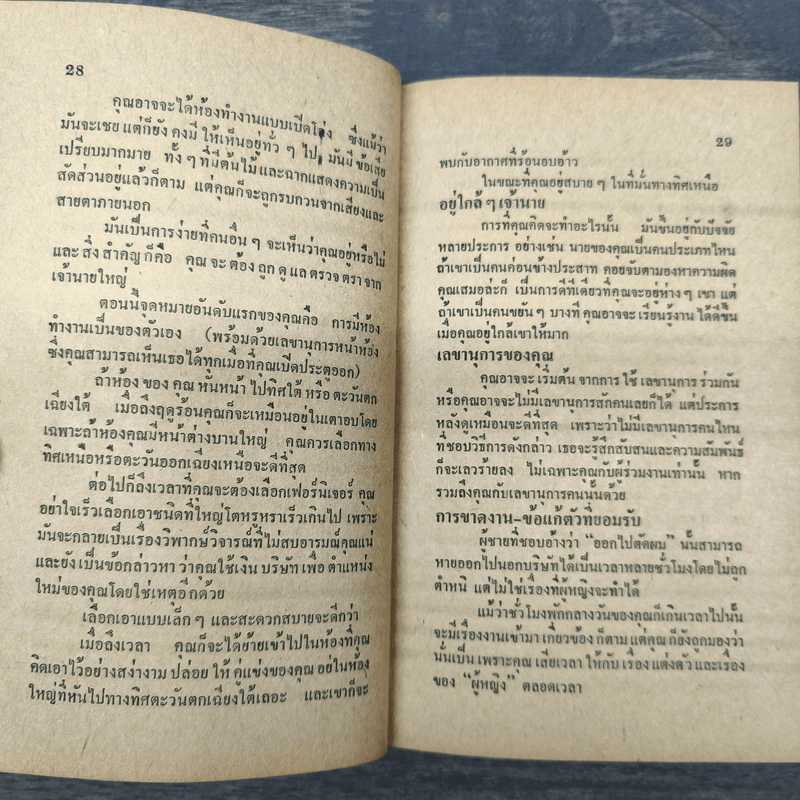 28
คุณอาจจะได้ห้องทำงานแบบเปิดโล่ง ซึ่งแม้ว่า
มันจะเชย แต่ก็ยัง คงมี ให้เห็นอยู่ทั่ว ๆ ไป มันมี ข้อเสีย
เปรียบมากมาย ทั้ง ๆ ที่มีต้นไม้ และฉากแสดงความเป็น
สัดส่วนอยู่แล้วก็ตาม แต่คุณก็จะถูกรบกวนจากเสียงและ
สายตาภายนอก
มันเป็นการง่ายที่คนอื่น ๆ จะเห็นว่าคุณอยู่หรือไม่
และ สิ่ง สำคัญ ก็คือ คุณ จะ ต้อง ถูก ดู แล ตรวจ ตรา จาก
เจ้านายใหญ่
ตอนนี้จุดหมายอันดับแรกของคุณคือ การมีห้อง
ทำงานเป็นของตัวเอง (พร้อมด้วยเลขานุการหน้าห้อง
ซึ่งคุณสามารถเห็นเธอได้ทุกเมื่อที่คุณเปิดประตูออก)
ถ้าห้อง ของ คุณ หันหน้า ไปทิศใต้ หรือ ตะวันตก
เฉียงใต้ เมื่อถึงฤดูร้อนคุณก็จะเหมือนอยู่ในเตาอบโดย
เฉพาะถ้าห้องคุณมีหน้าต่างบานใหญ่ คุณควรเลือกทาง
ทิศเหนือหรือตะวันออกเฉียงเหนือจะดีที่สุด
ต่อไปก็ถึงเวลาที่คุณจะต้องเลือกเฟอร์นิเจอร์ คุณ
อย่าใจเร็วเลือกเอาชนิดที่ใหญ่โตหรูหราเร็วเกินไป เพราะ
มันจะกลายเป็นเรื่องวิพากษ์วิจารณ์ที่ไม่สบอารมณ์คุณแน่
และยัง เป็นข้อกล่าวหา ว่าคุณใช้เงิน บริษัท เพื่อ ตำแหน่ง
ใหม่ของคุณโดยใช่เหตุอีกด้วย
เลือกเอาแบบเล็ก ๆ และสะดวกสบายจะดีกว่า
เมื่อถึงเวลา คุณก็จะได้ย้ายเข้าไปในห้องที่คุณ
คิดเอาไว้อย่างสง่างาม ปล่อย ให้ คู่แข่งของคุณ อยู่ในห้อง
ใหญ่ที่หันไปทางทิศตะวันตกเฉียงใต้เถอะ และเขาก็จะ
29
พบกับอากาศที่ร้อนอบอ้าว
ในขณะที่คุณอยู่สบาย ๆ ในที่มั่นทางทิศเหนือ
อยู่ใกล้ ๆ เจ้านาย
การที่คุณคิดจะทำอะไรนั้น มันขึ้นอยู่กับปัจจัย
หลายประการ อย่างเช่น นายของคุณเป็นคนประเภทไหน
ถ้าเขาเป็นคนค่อนข้างประสาท คอยจับตามองหาความผิด
คุณเสมอล่ะก็ เป็นการดีทีเดียวที่คุณจะอยู่ห่าง ๆ เขา แต่
ถ้าเขาเป็นคนขยัน ๆ บางที คุณอาจจะ เรียนรู้งาน ได้ดีขึ้น
เมื่อคุณอยู่ใกล้เขาให้มาก
เลขานุการของคุณ
คุณอาจจะ เริ่มต้น จากการ ใช้ เลขานุการ ร่วมกัน
หรือคุณอาจจะไม่มีเลขานุการสักคนเลยก็ได้ แต่ประการ
หลังดูเหมือนจะดีที่สุด เพราะว่าไม่มีเลขานุการคนไหน
ที่ชอบวิธีการดังกล่าว เธอจะรู้สึกสับสนและความสัมพันธ์
ก็จะเลวร้ายลง ไม่เฉพาะคุณกับผู้ร่วมงานเท่านั้น หาก
รวมถึงคุณกับเลขานุการคนนั้นด้วย
การขาดงาน-ข้อแก้ตัวที่ยอมรับ
ผู้ชายที่ชอบอ้างว่า “ออกไปตัดผม” นั้นสามารถ
หายออกไปนอกบริษัทได้เป็นเวลาหลายชั่วโมงโดยไม่ถูก
ตำหนิ แต่ไม่ใช่เรื่องที่ผู้หญิงจะทำได้
แม้ว่าชั่วโมงพักกลางวันของคุณก็เกินเวลาไปนั้น
จะมีเรื่องงานเข้ามา เกี่ยวข้อง ก็ตาม แต่คุณ ก็ยังถูกมองว่า
นั่นเป็น เพราะคุณ เสียเวลา ให้กับ เรื่อง แต่งตัว และเรื่อง
ของ “ผู้หญิง” ตลอดเวลา